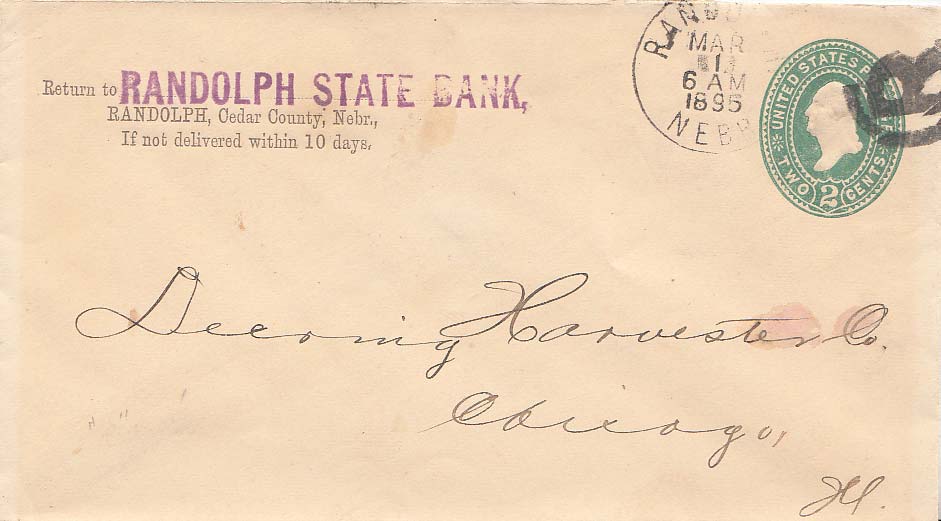 Return to RANDOLPH STATE BANK,
RANDOLPH, Cedar County, Nebr.,
If not delivered within 10 days,
MAR
6 AM
1895
NEBR
UNITED STATES
TWO 2 CENTS
Deering Harvester Co.
Chicago,
Ill.